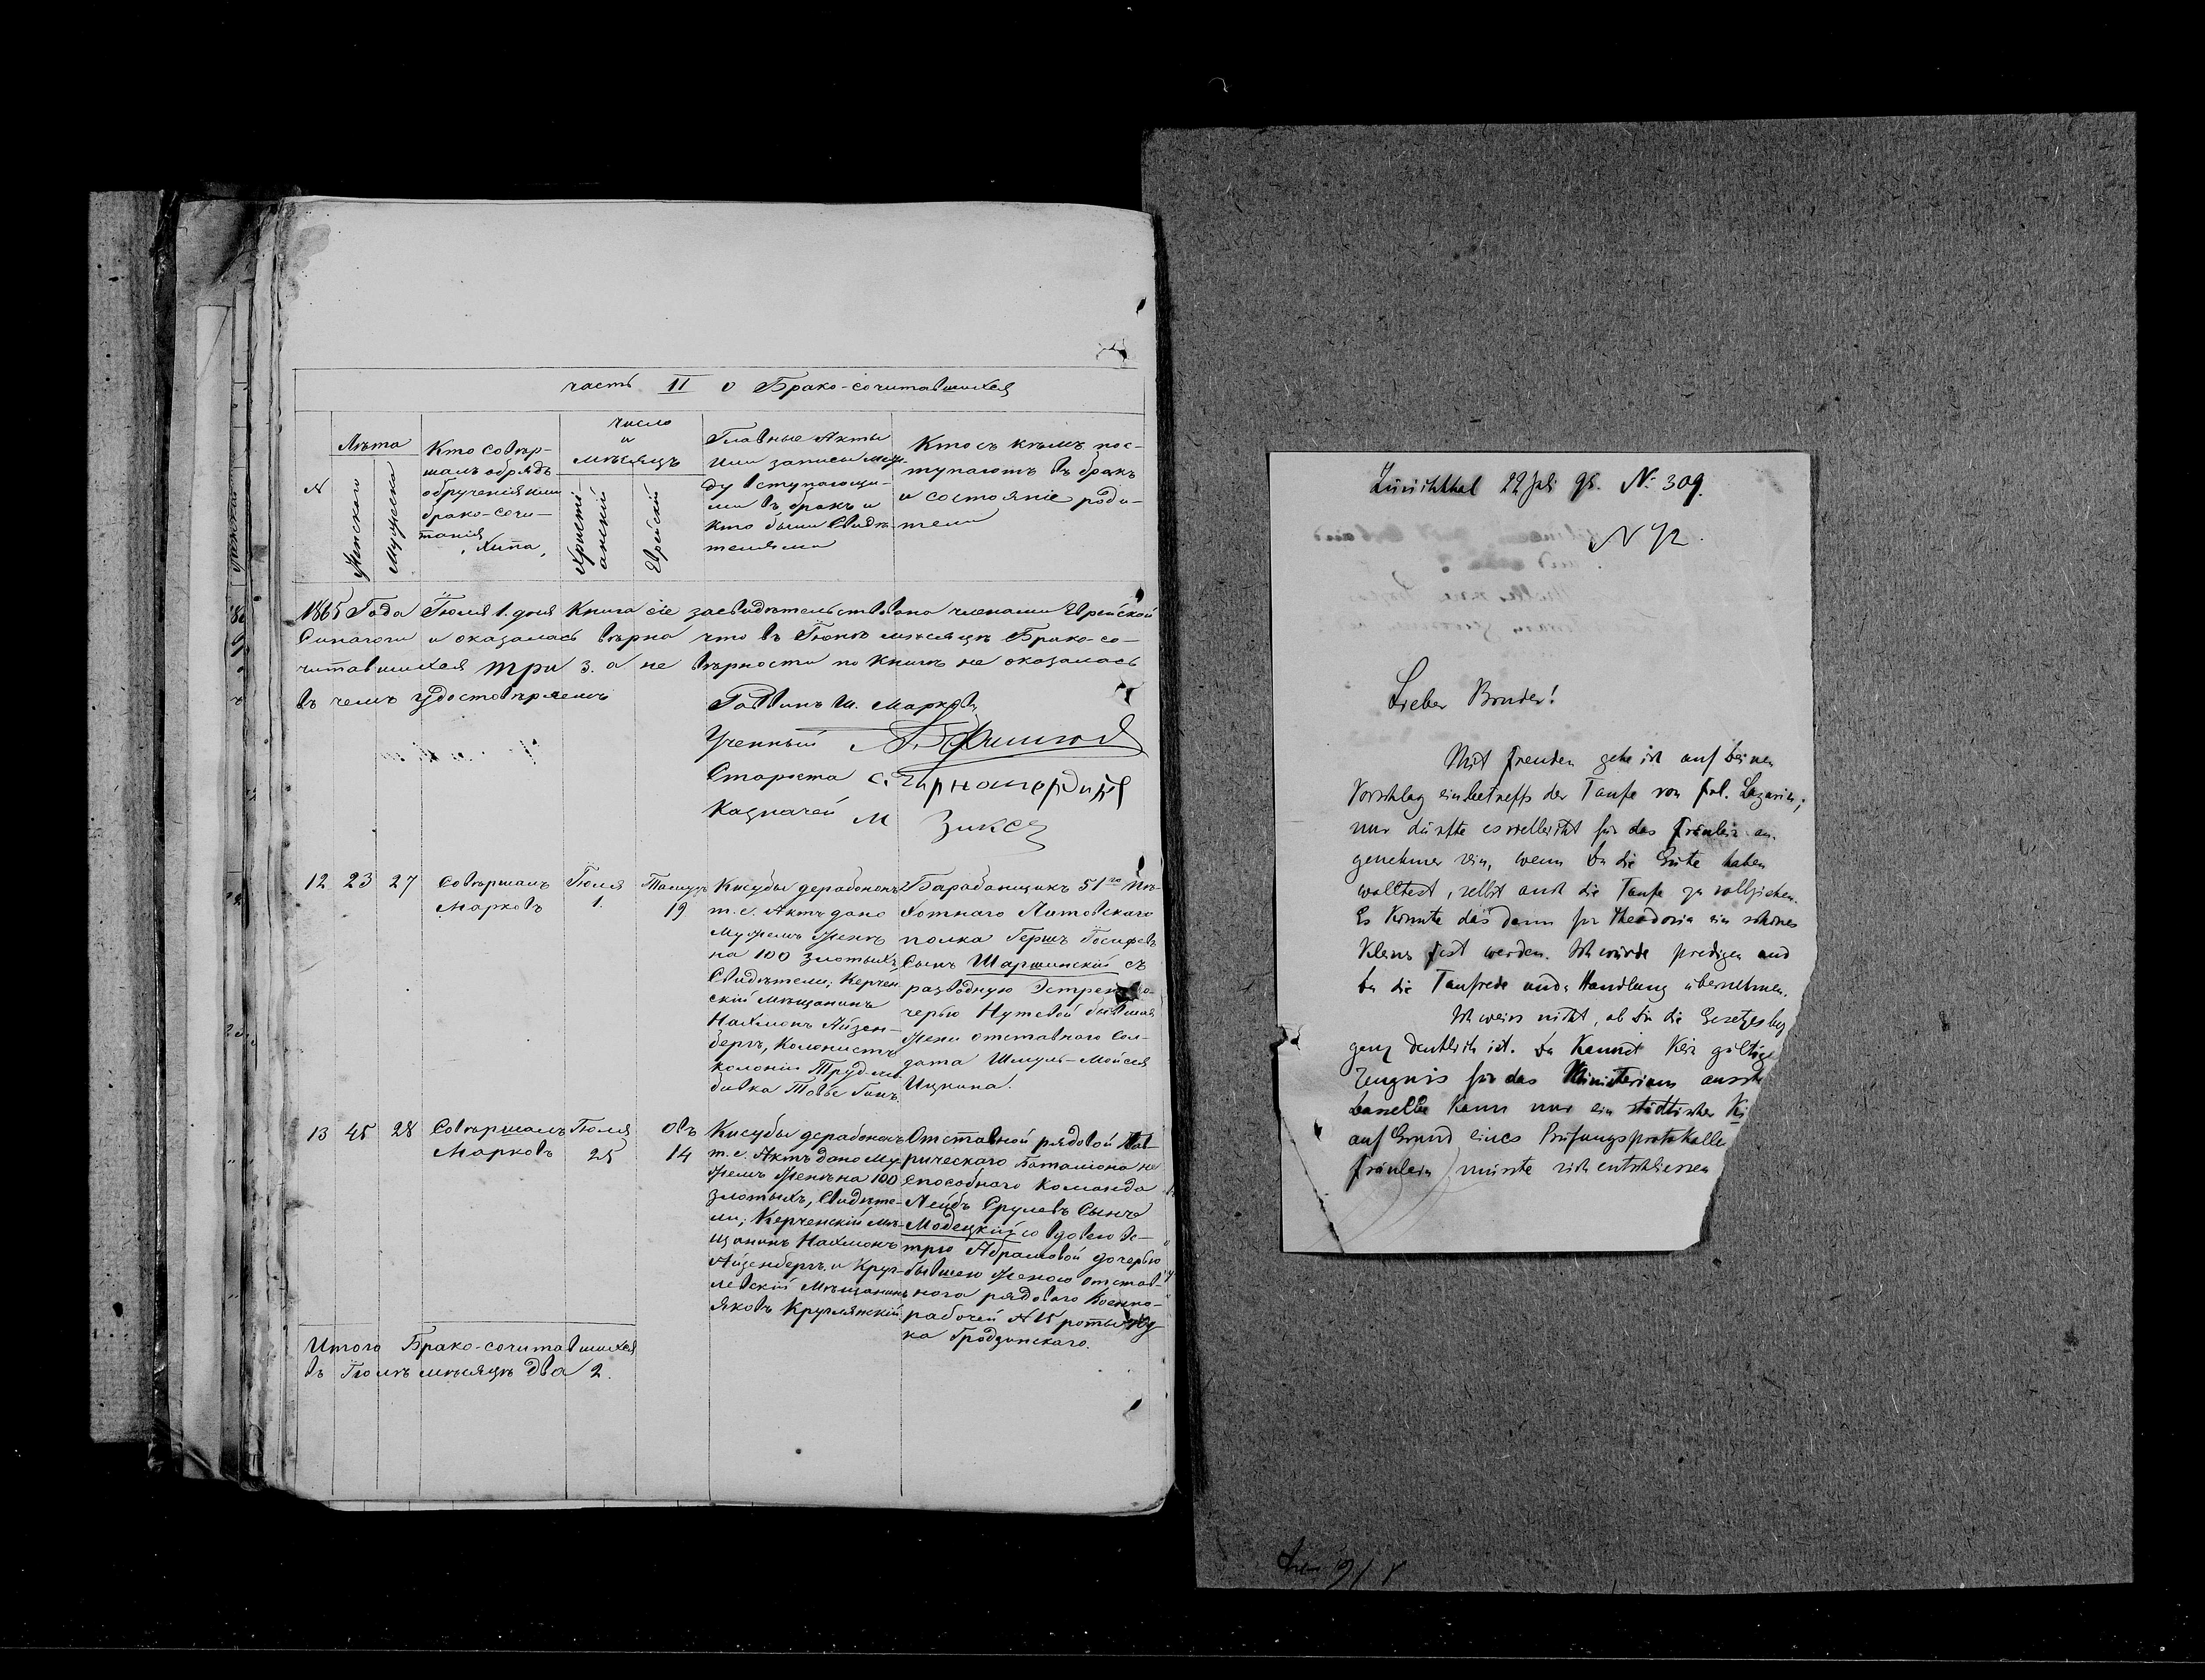 часть II о Брако-сочитавшихся
№
Лѣта
Женского
Мужеска
Кто совер-
шалъ обрядъ
обрученія или
брако-сочи-
танія
, Хупа,
число
и
мѣсяцъ
Христі-
анскій
Еврейскій
Главные Акты
или записи меж-
ду вступающи-
ми въ бракъ и
кто были Свидѣ-
телями
Кто съ кѣмъ пос-
тупаютъ въ бракъ
и состояніе роди-
тели
1865 Года Іюля 1. дня Книга сіе засвидѣтельствована членами Еврейской
Синагоги и оказалась вѣрна что въ Іюнѣ мѣсяцѣ Брако-со-
читавшихся три 3. а не вѣрности по книгѣ не оказалась
въ чемъ удостовѣряемъ
Раввинъ Ш. Марковъ
Ученный
Староста С.
Казначей М Зиксъ
12 23 27
Совѣршалъ
Марковъ
Іюля
1.
Тамузъ
19
Кисубы дерабононъ
т. е. Актъ дано
Мужемъ Женѣ
на 100 Злотыхъ
Свидѣтели; Керчен-
скій мѣщанинъ
Нахмонъ Айзен-
бергъ, Колонистъ
колоніи Трудлю-
бовка Товье Гинъ.
Барабанщикъ 51го Пѣ-
хотнаго Литовскаго
полка Гершъ Іосифовъ
Сынъ Шаршинскій съ
разводную Эстрею до-
черью Нутовой бывшая
жени отставного сол-
дата Шмуль-Мойсея
Ицкина.
13 45 28
Совѣршалъ
Марковъ
Іюля
25
Овъ
14
Кисубы дерабононъ
т. е. Актъ дано Му-
жемъ Женѣ на 100
злотыхъ, Свидѣте-
ли; Керченскій мѣ-
щанинъ Нахмонъ
Айзенбергъ и Круг-
левскій Мѣщанинъ
Яковъ Круглянскій
Отставной рядовой Тав-
рическаго Баталіона не
способнаго Команда
Лейбъ Срулевъ Сынъ
Модецкій со вдовою Эс-
трю Абрамовой дочерью
бывшею женою отстав-
ного рядового Военно-
рабочей № 15 роты
ка Гродзинскаго.
Итого Брако-сочитавшихся
въ Іюлѣ мѣсяцѣ два 2.
Zürichthal 22 Juli 98. No 309.
N 72.
Lieber Bruder!
Mit Freuden gehe ich auf Deinen
Vorschlag einbetreffs der Taufe von Frl. Lazarin;
nur dürfte es vielleicht für das Fräulein an-
genehmer sein, wenn Du die Güte haben
wolltest, selbst auch die Taufe zu vollziehen.
Es könnte das dann für Theodosia ein schönes
kleines Fest werden. Ich würde predigen und
Du die Taufrede und Handlung übernehmen.
Ich weiss nicht, ob Dir die Gesetzeslag
ganz deutlich ist. Du kannst kein gültige
Zeugnis für das Ministerium ausste
Dasselbe kann nur ein städtischer Ki
auf Grund eines Prüfungsprotokolle
Fräulein müsste sich entschliessen